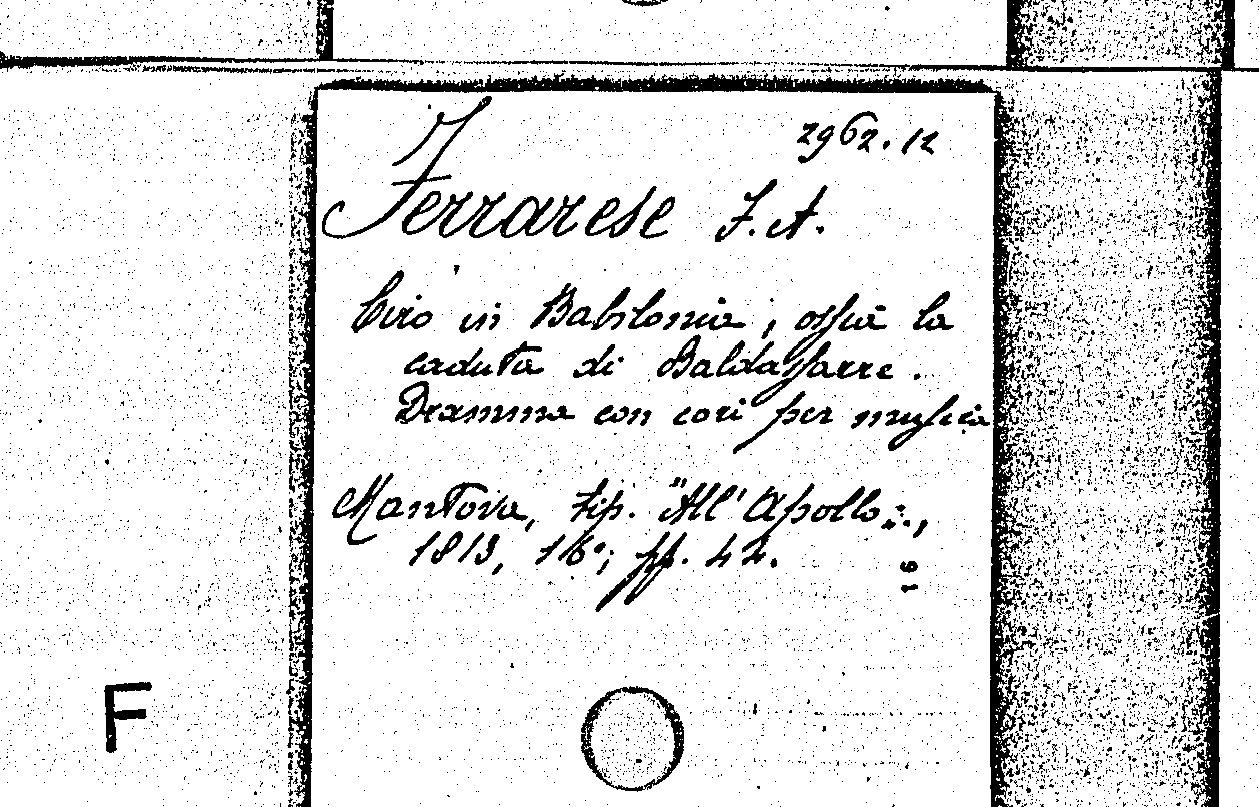 2962.12
Ferrarese F. A.
Ciro in Babilonia, ossia la
caduta di Baldassarre.
Dramma con cori per musica
Mantova, tip. "All'Apollo„,
1813, 16°; pp. 42.
16
F